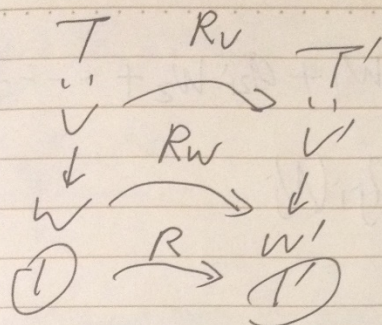 T R_V T'
V V'
R_W
W W'
R